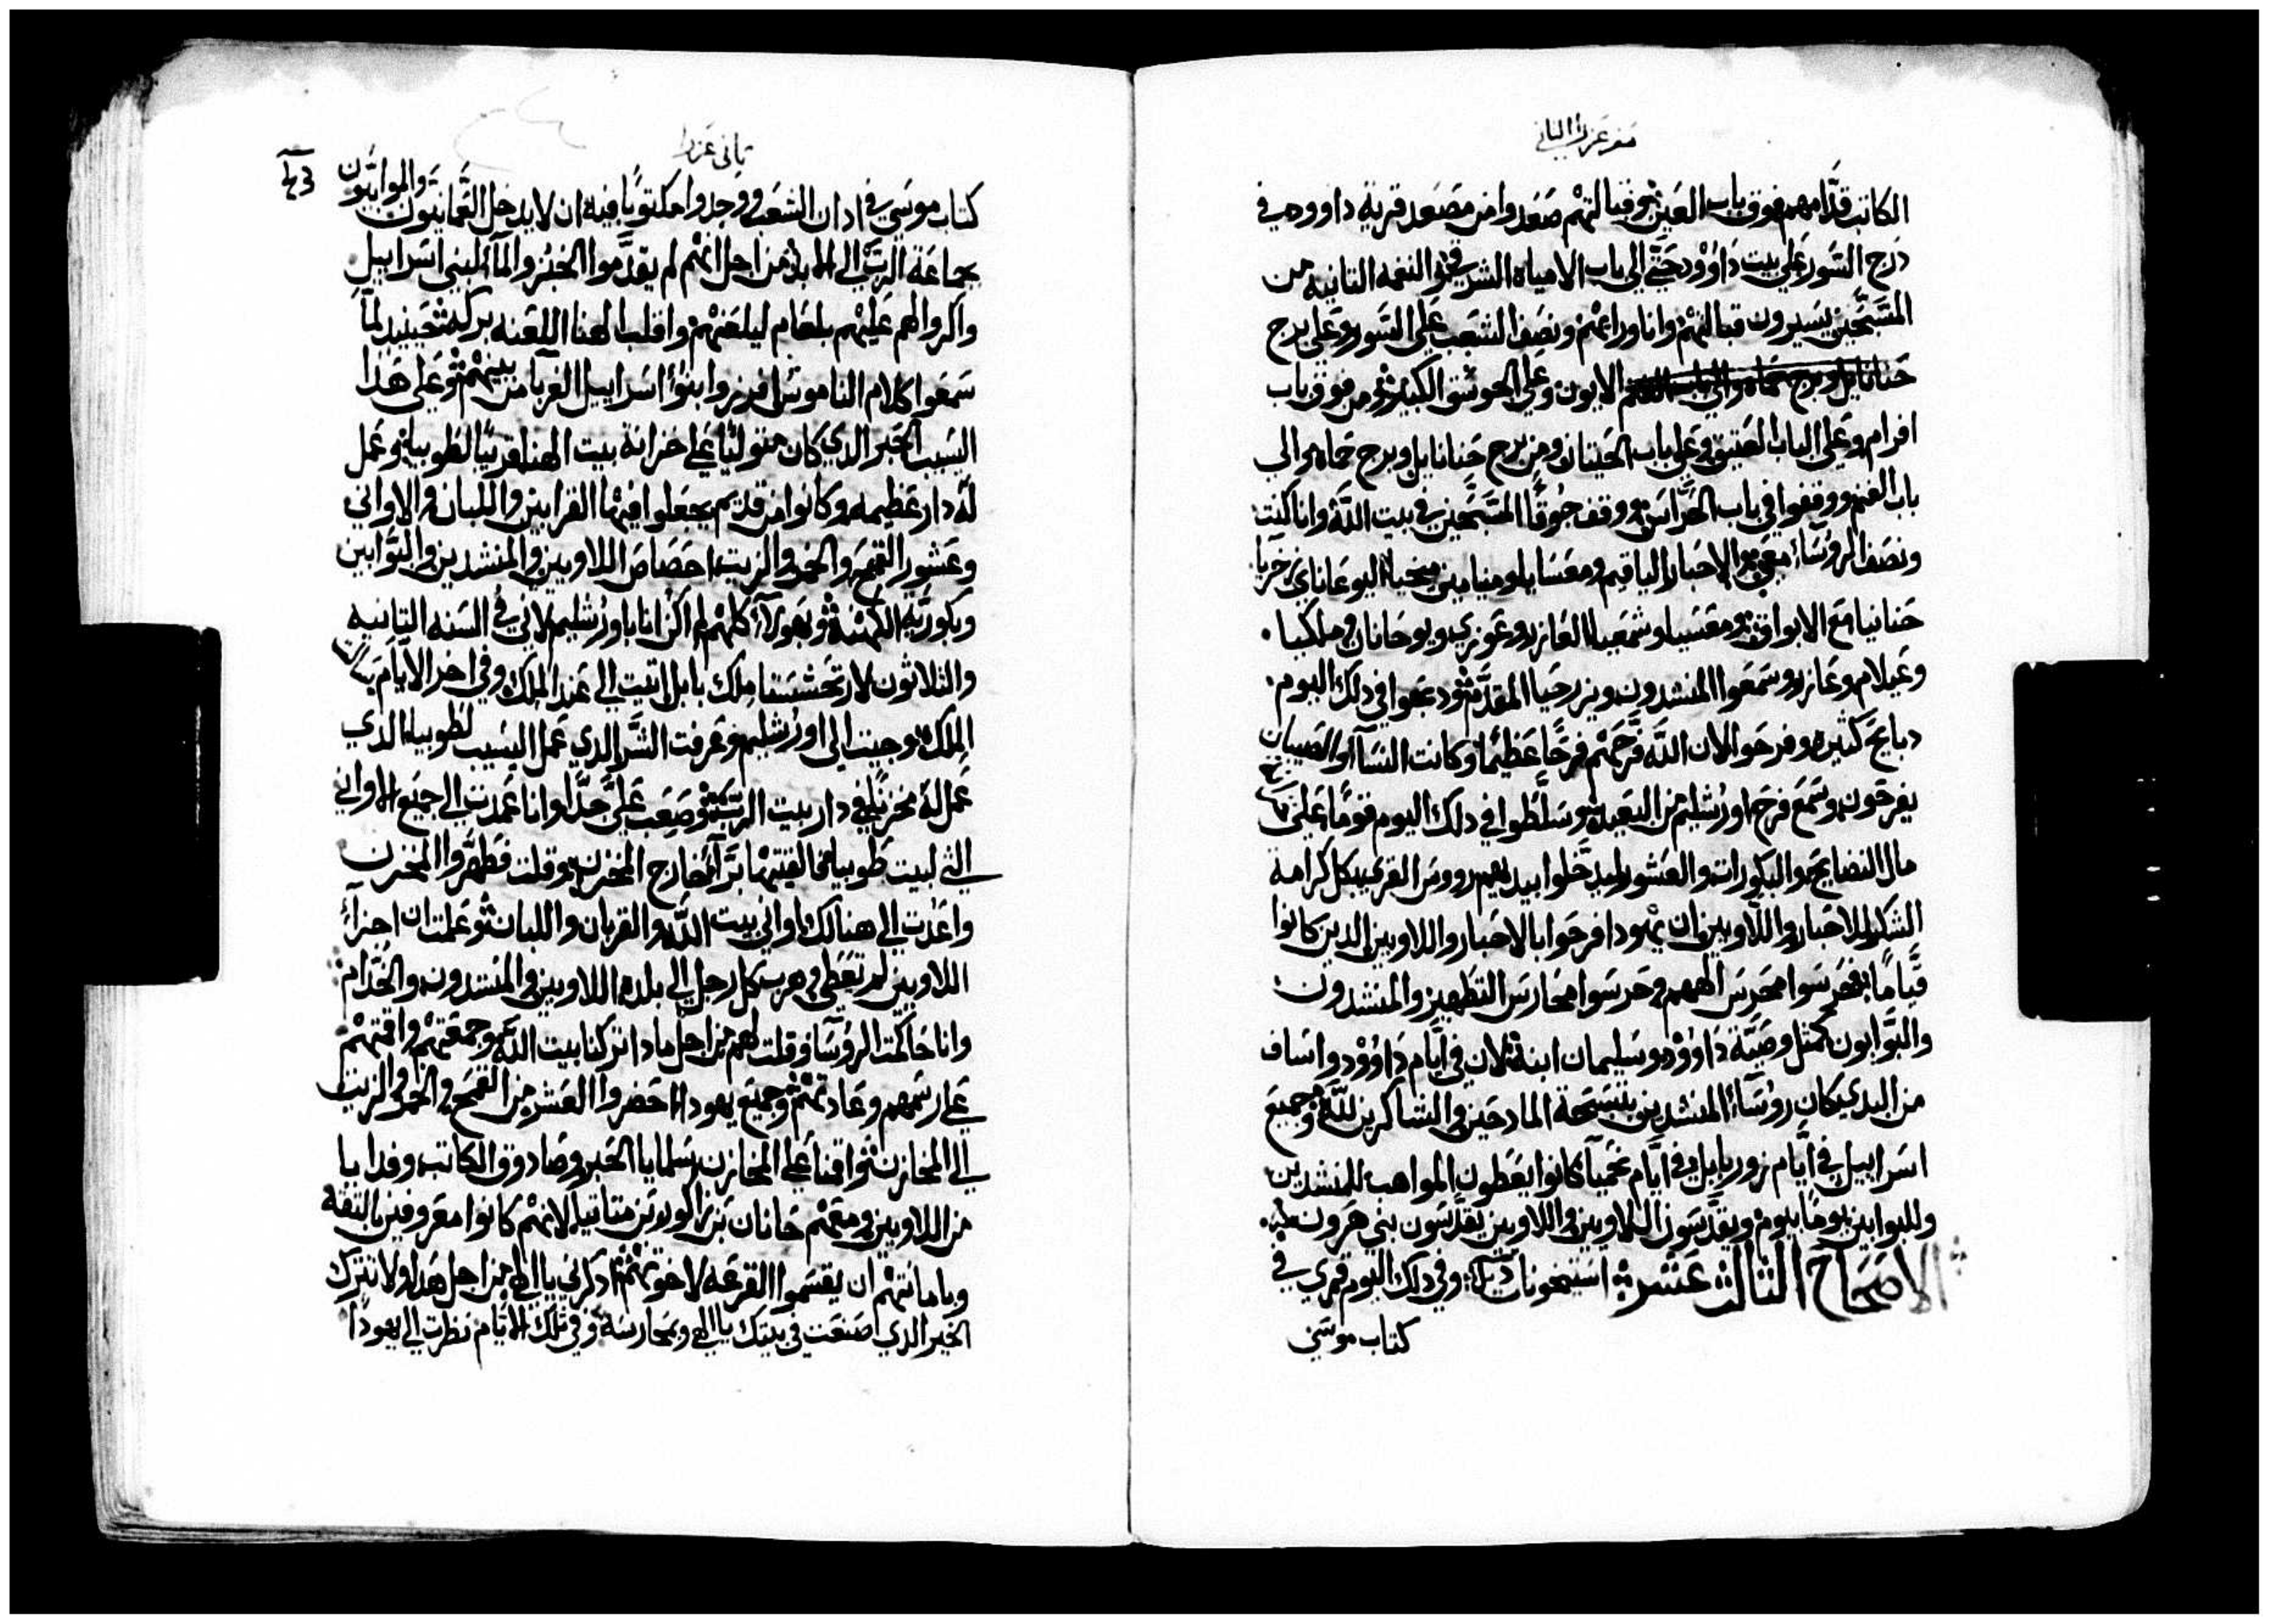 سفر عزرا الثاني
الكاتب قدامهم فوق باب العين وقبالتهم صعدوا من مصعد قرية داوود في
درج السور على بيت داوود حتى الى باب الامياه الشرقي والنغمه الثانيه من
المسبحين يسيرون قبالتهم وانا وراهم ونصف الشعب على السور وعلى برج
الاتون وعلى الحوش الكبير ومن فوق باب
افرام وعلى الباب العتيق وعلى باب الحيتان ومن برج حنانايل وبرج حماه والي
باب الغنم ووقفوا في باب الحراس ووقف جوقا المسبحين في بيت الله وانا كنت
ونصف الروساء معي والاحبار الياقيم ومعسايا ومنيامين ميخيا اليوعاناي زخريا
حنانيا مع الابواق ومعسيا وشمعيا العازر وعوزي ويوحانان وملكيا
وعيلام وعازر وسمعوا المنشدون ويزرحيا المقدم ودبحوا في دلك اليوم
دبايح كثيره وفرحوا لان الله فرحهم فرحا عظيما وكانت النسآ والصبيان
يفرحون وسمع فرح اورشليم من البعيد وسلطوا في دلك اليوم قوما على
مال النضايح والبكورات والعشور ليدخلوا بيديهم رووس القري بكل كرامة
الشكر للاحبار واللاويين ان يهودا فرحوا بالاحبار واللاويين الدين كانوا
قياما فحرسوا محرس الههم وحرسوا محارس التطهير والمنشدون
والبوابون كمثل وصية داوود وسليمان ابنه لان في ايام داوود واساف
من البدي كان روساء المنشدين بتسبحة المادحين والشاكرين لله وجميع
اسراييل في ايام زوربابل وفي ايام نحميا كانوا يعطون المواهب للمنشدين
وللبوابين يوما بيوم ويقدسون اللاويين واللاويين يقدسون بني هرون
الاصحاح الثالث عشر وفي دلك اليوم قري في
كتاب موسي
ثاني عزرا
كتاب موسي في ادان الشعب ووجدوا مكتوبا فيه ان لا يدخل العمانيون والموابيون
جماعة الرب الى الابد من اجل انهم لم يقدموا الخبز والمآ لبني اسراييل
واكروا لهم عليهم بلعام ليلعنهم واقلب الهنا اللعنه بركه حينيد لما
سمعوا كلام الناموس افرزوا بنوا اسراييل الغربا من بينهم وعلى هدا
اليسيب الحبر الدي كان متوليا على خزانة بيت الهنا قريبا لطوبيا وعمل
له دار عظيمه وكانوا من قديم يجعلوا فيها القرابين واللبان والاواني
وعشور القمح والخمر والزيت احصاص اللاويين والمنشدين والبوابين
وبكورية الكهنة وبهولآء كلهم لم اكن انا باورشليم لاني في السنه الثانيه
والثلاثون لارتحشستا ملك بابل اتيت الى عند الملك وفي اخر الايام
الملك وجيت الى اورشليم وعرفت الشر الدي عمل اليسيب لطوبيا الدي
عمل له مخزنا في دار بيت الرب وصعب علي جدا وانا عمدت الى جميع الاواني
التي لبيت طوبيا فالقيتها برآ خارج المخزن وقلت فطهروا المخزن
واعدت الى هنالك اواني بيت الله والقربان واللبان وعلمت ان اجزآء
اللاويين لم تعطي وهرب كل رجل الى بلده اللاويين والمنشدون والخدام
وانا حاكمت الروسآ وقلت لهم من اجل مادا تركنا بيت الله وجمعتهم واقمتهم
على رسمهم وعادتهم وجميع يهودا احضروا العشر من القمح والخمر والزيت
الى المخازن واقمنا على المخازن سلمايا الحبر وصادوق الكاتب وفدايا
من اللاويين ومعهم حانان بن زاكور بن متانيا لانهم كانوا معروفين بالثقه
وبامانتهم ان يقسموا القرعه لاخوتهم ادكرني يا الهي من اجل هدا ولا تترك
الخير الدي اصنعت في بيتك يا الهي ومحارسه وفي تلك الايام نظرت الى يهودا